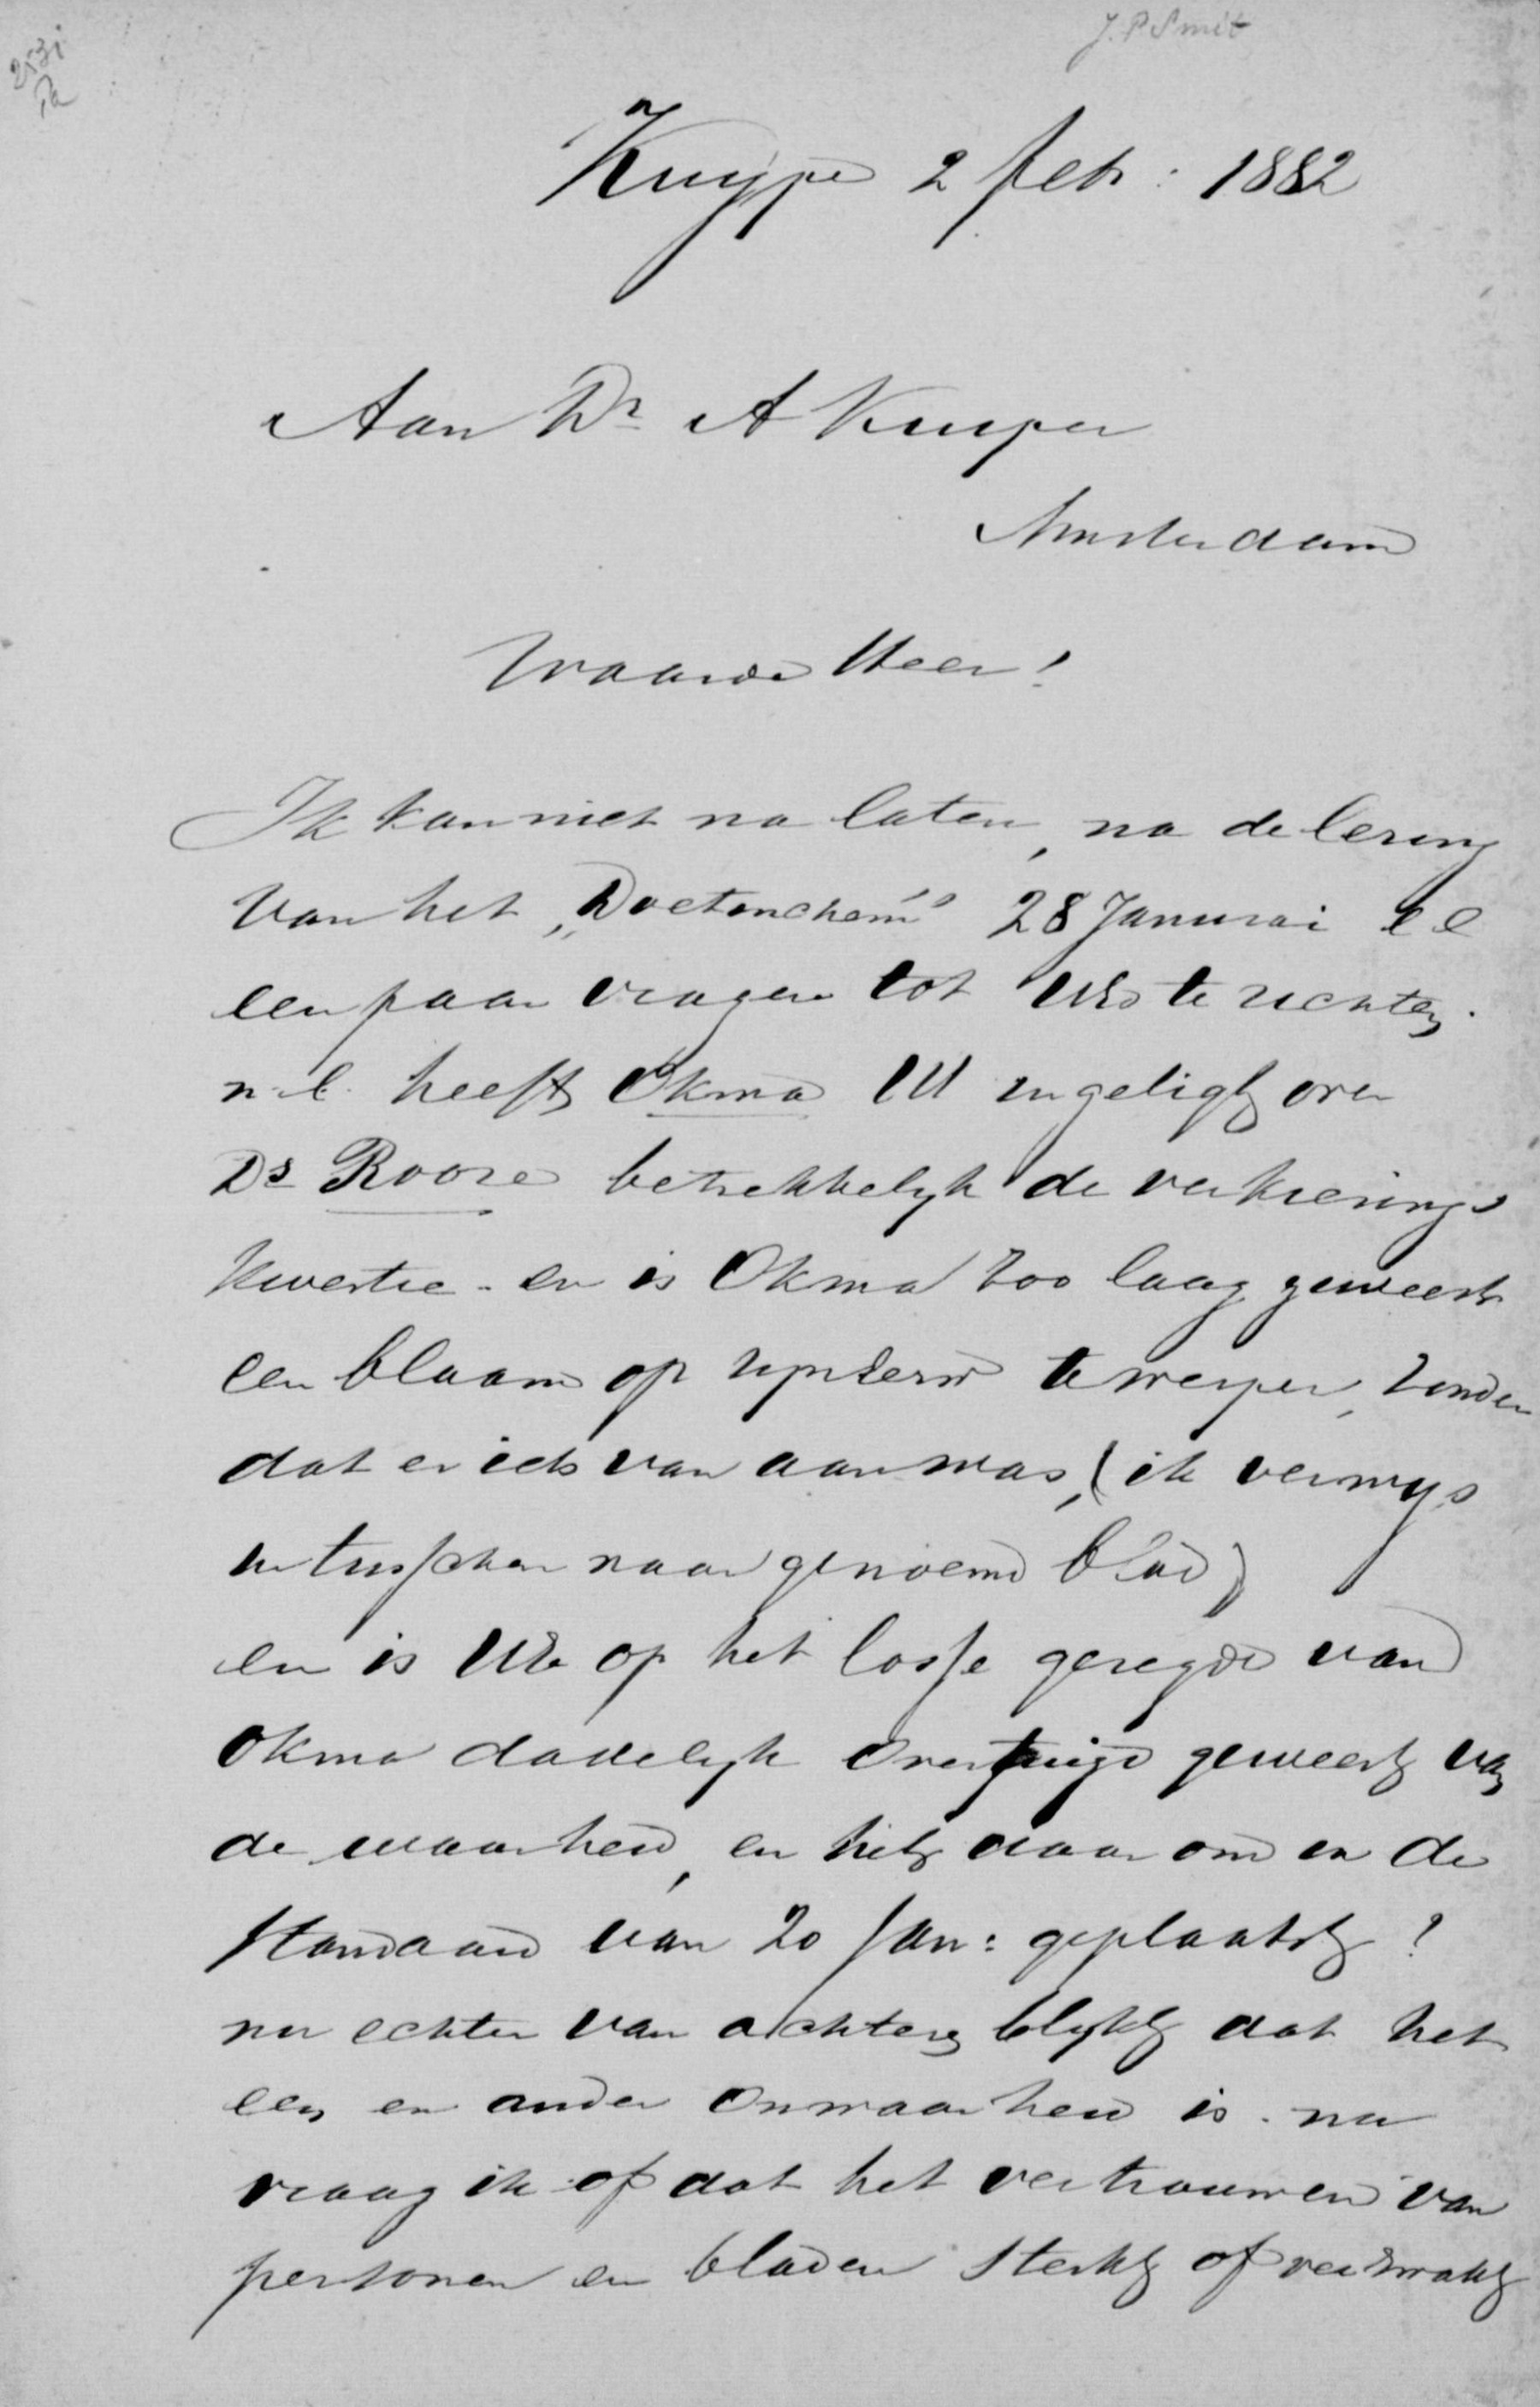 J. P Smit
2531
Knijpe 2 feb: 1882
Aan Dr A Kuiper
Amsterdam
Waarde Heer!
Ik kan niet na laten, na de lezing
van het „Doetinchem" 28 Januari l l
een paar vragen tot UEd te richten.
n.l. heeft Okma UE ingeligt over
Ds Rooze betrekkelijk de verkiezings
kwestie - en is Okma zoo laag geweest
een blaam op zijn Eerw te werpen, zonder
dat er iets van aan was, (ik verwijs
intusschen naar genoemd blad)
en is UEd op het losse gezegde van
Okma dadelijk overtuigd geweest van
de waarheid, en hebt daarom in de
Standaard van 20 Jan: geplaatst?
nu echter van achteren blijkt dat het
een en ander onwaarheid is. nu
vraag ik of dat het vertrouwen van
personen en bladen sterkt of verzwakt